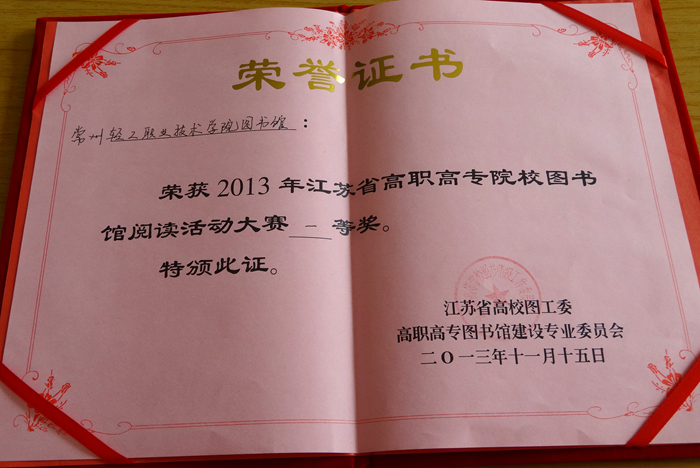 荣誉证书
常州轻工职业技术学院图书馆：
荣获2013年江苏省高职高专院校图书
馆阅读活动大赛一等奖。
特颁此证。
江苏省高校图工委
高职高专图书馆建设专业委员会
二〇一三年十一月十五日